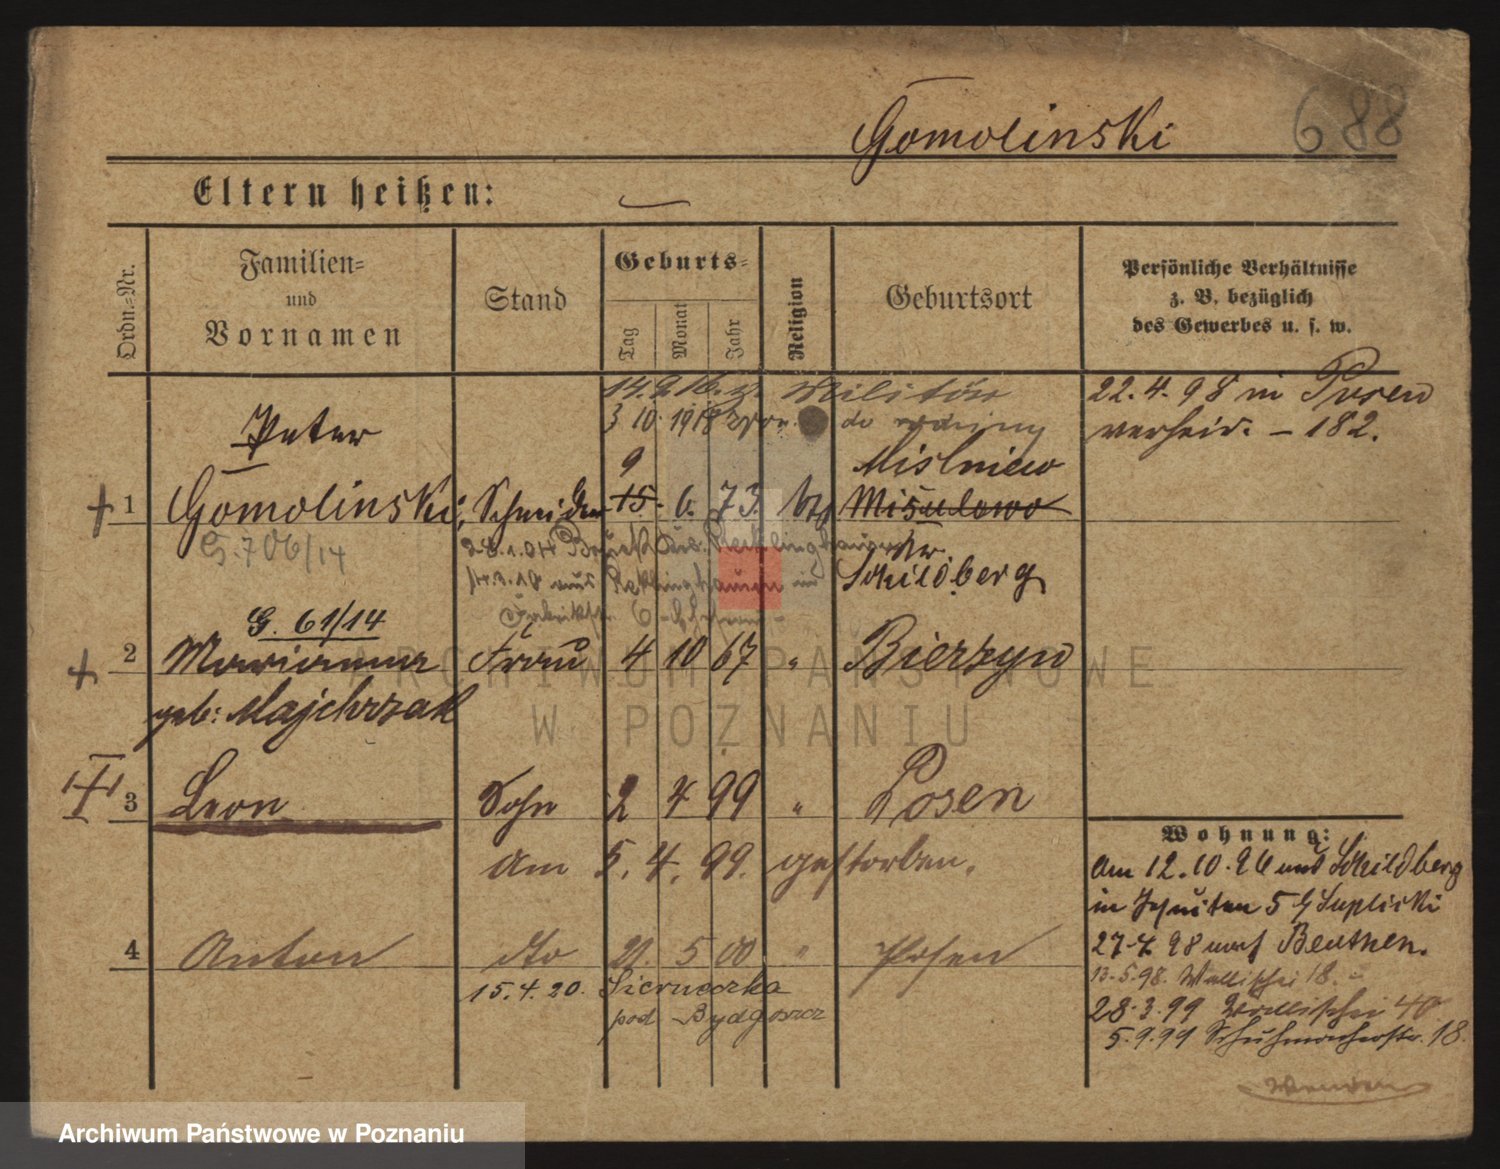 Gomolinski 688
Eltern heißen: —
Ordn.-Nr.
Familien-
und
Vornamen
Stand
Geburts-
Tag
Monat
Jahr
Religion
Geburtsort
Persönliche Verhältnisse
z. B. bezüglich
des Gewerbes u. s. w.
14.9.16. z. Militär
3 10. 1918 do rodziny
22.4.98 in Posen
verheir. – 182.
Peter
9
Mislniew
1 Gomolinski, Schneider 15. 6. 73. kth
G. 706/14
28.1.04 Bruch Krs. Recklinghausen
aus Recklinghausen in
Kr.
Schildberg
G. 61/14
2 Marianna Frau 4 10 67 " Bierzyn
geb: Majchrzak
3 Leon Sohn 2 4 99 " Posen
am 5. 4. 99. gestorben.
4 Anton dto 21. 5 00 " Posen
15.4.20. Siernieczka
pod Bydgoszcz
Wohnung:
Am 12.10.96 aus Schildberg
in Jesuiten 5
27.4.98 nach Beuthen.
13.5.98. Wallischei 18.
28.3.99 Wallischei 40
5.9.99 Schuhmacherstr. 18.
Wenden
ARCHIWUM PAŃSTWOWE
W POZNANIU
Archiwum Państwowe w Poznaniu